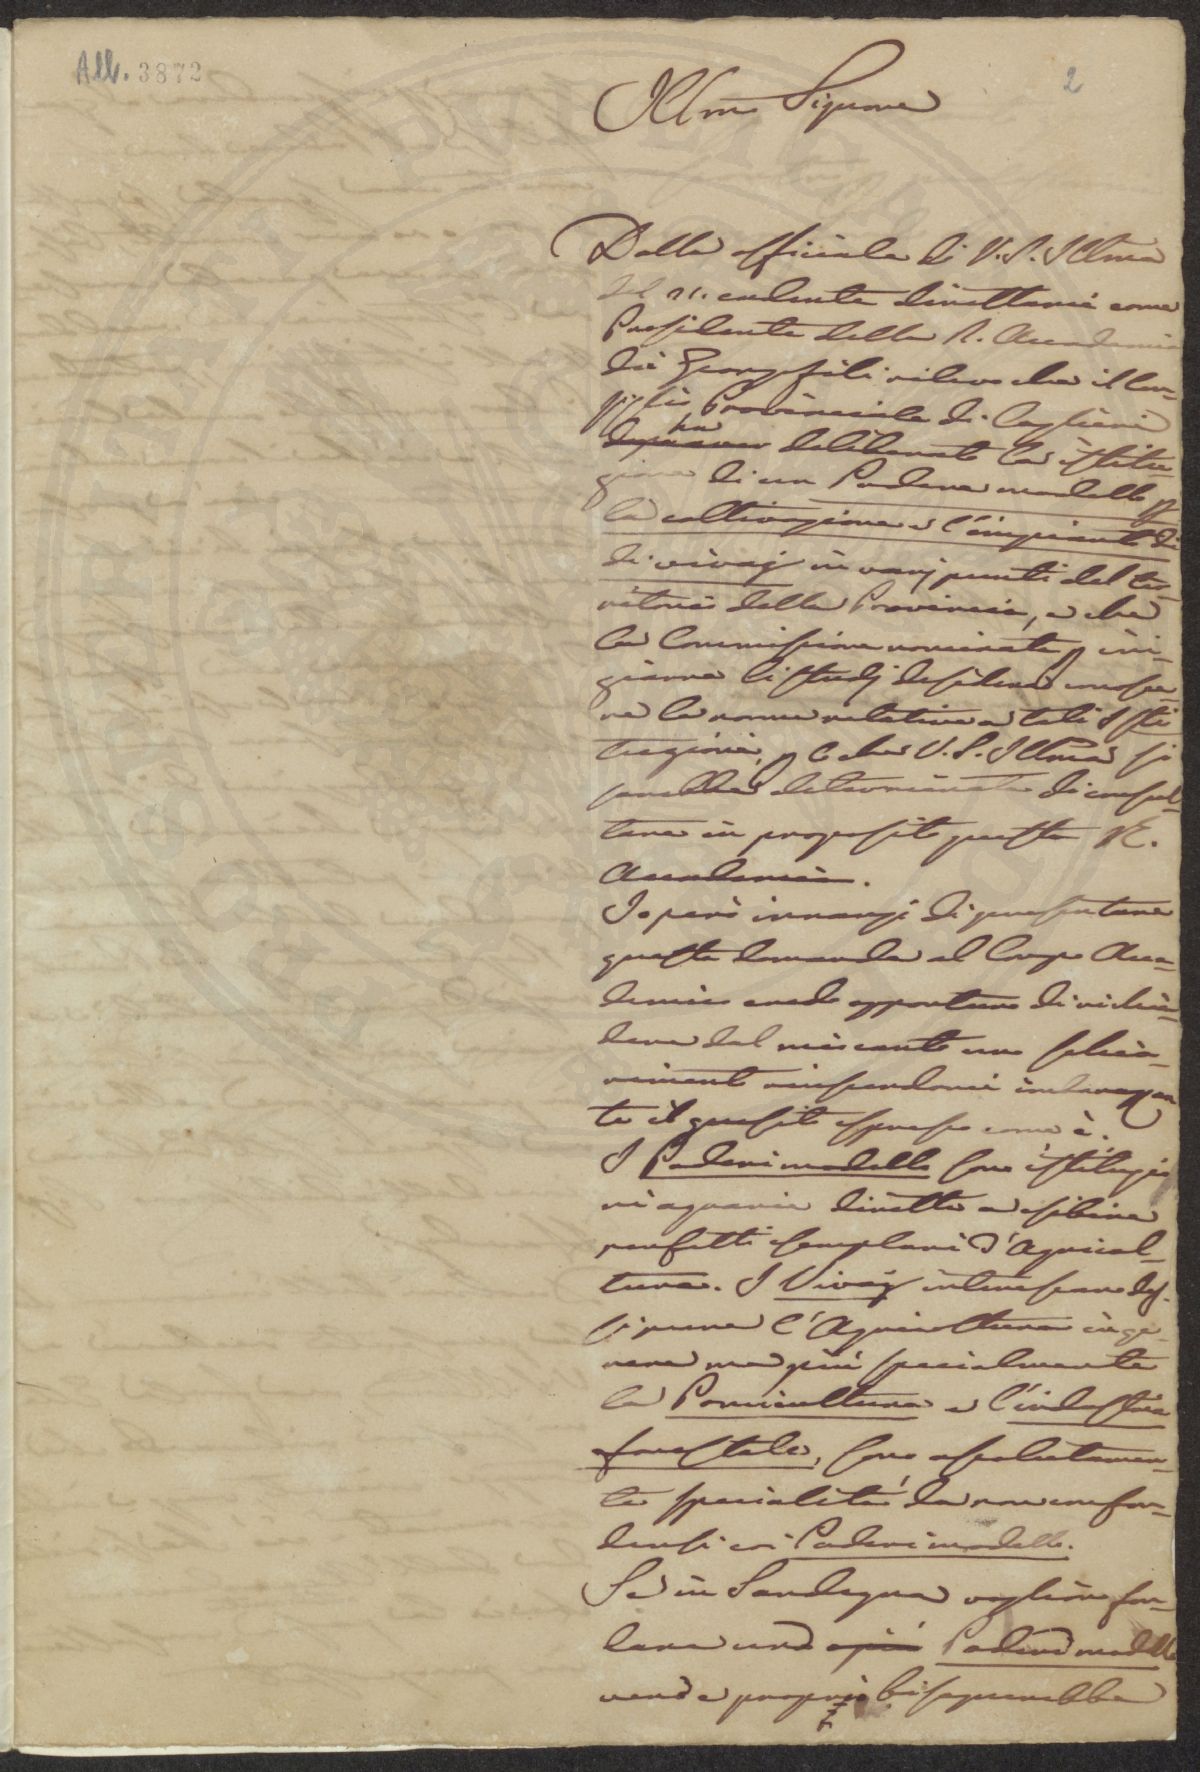 All. 3872
2
Illmo Signore
Dalla officiale di V. S. Illma
del 21. cadente direttami come
Presidente della R. Accademia
dei Georgofili rilevo che il Con-
siglio Provinciale di Cagliari
ha
deliberato la istitu
zione di un Podere modello p
la coltivazione e l'impianto di
di vivaj in varj punti del ter-
ritorio della Provincia, e che
la Commissione nominata p ini-
ziarne li studj desidera conosce-
re le norme relative a tali Isti
tuzioni, p c che V. S. Illma si
sarebbe determinata di consul-
tare in proposito questa R.
Accademia.
Io però innanzi di presentare
questa domanda al Corpo Acca-
demico credo opportuno di richie-
dere dal mio canto uno schia-
rimento sembrandomi
te il quesito espresso come è.
I Poderi modello sono istituzio
ni agrarie dirette a esibire
perfetti esemplari d'Agricol-
tura. I Vivaj interessano
pure l'Agricoltura in ge-
nere ma più specialmente
la Pomicultura e l'industria
forestale, sono assolutamen-
te specialità da non confon-
dersi coi Poderi modello.
Se in Sardegna voglion fon-
dare uno o più Poderi modello
vero e proprio bisognerebbe